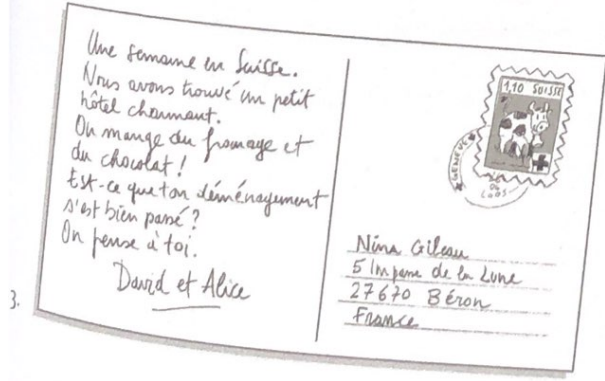 Une semaine en Suisse.
Nous avons trouvé un petit
hôtel charmant.
On mange du fromage et
du chocolat !
Est-ce que ton déménagement
s'est bien passé ?
On pense à toi.
David et Alice
1,10 SUISSE
GENEVE
Nina Gileau
5 Impasse de la Lune
27670 Béron
France
3.